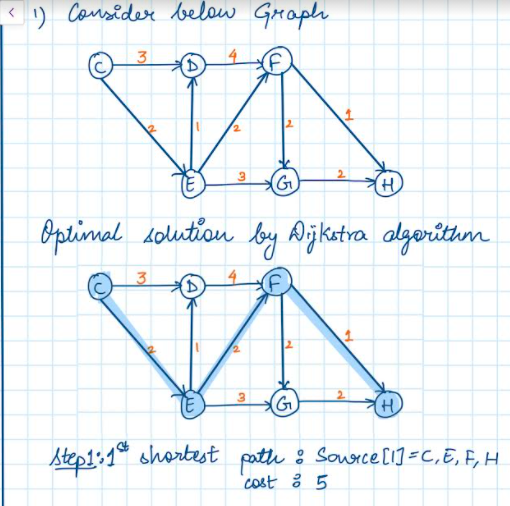 1) Consider below Graph
C 3 D 4 F
2 1 2 2 1
E 3 G 2 H
Optimal solution by Dijkstra algorithm
C 3 D 4 F
2 1 2 2 1
E 3 G 2 H
Step1: 1st shortest path : Source[1] = C, E, F, H
cost : 5